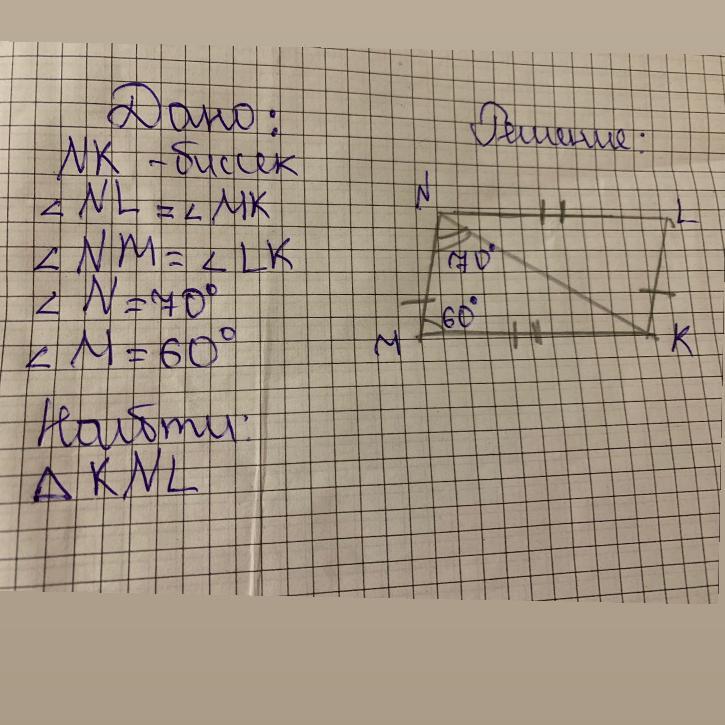 Дано:
NK - биссек
∠ NL = ∠ MK
∠ NM = ∠ LK
∠ N = 70°
∠ M = 60°
Найти:
△ KNL
Решение:
N
L
70°
60°
M
K